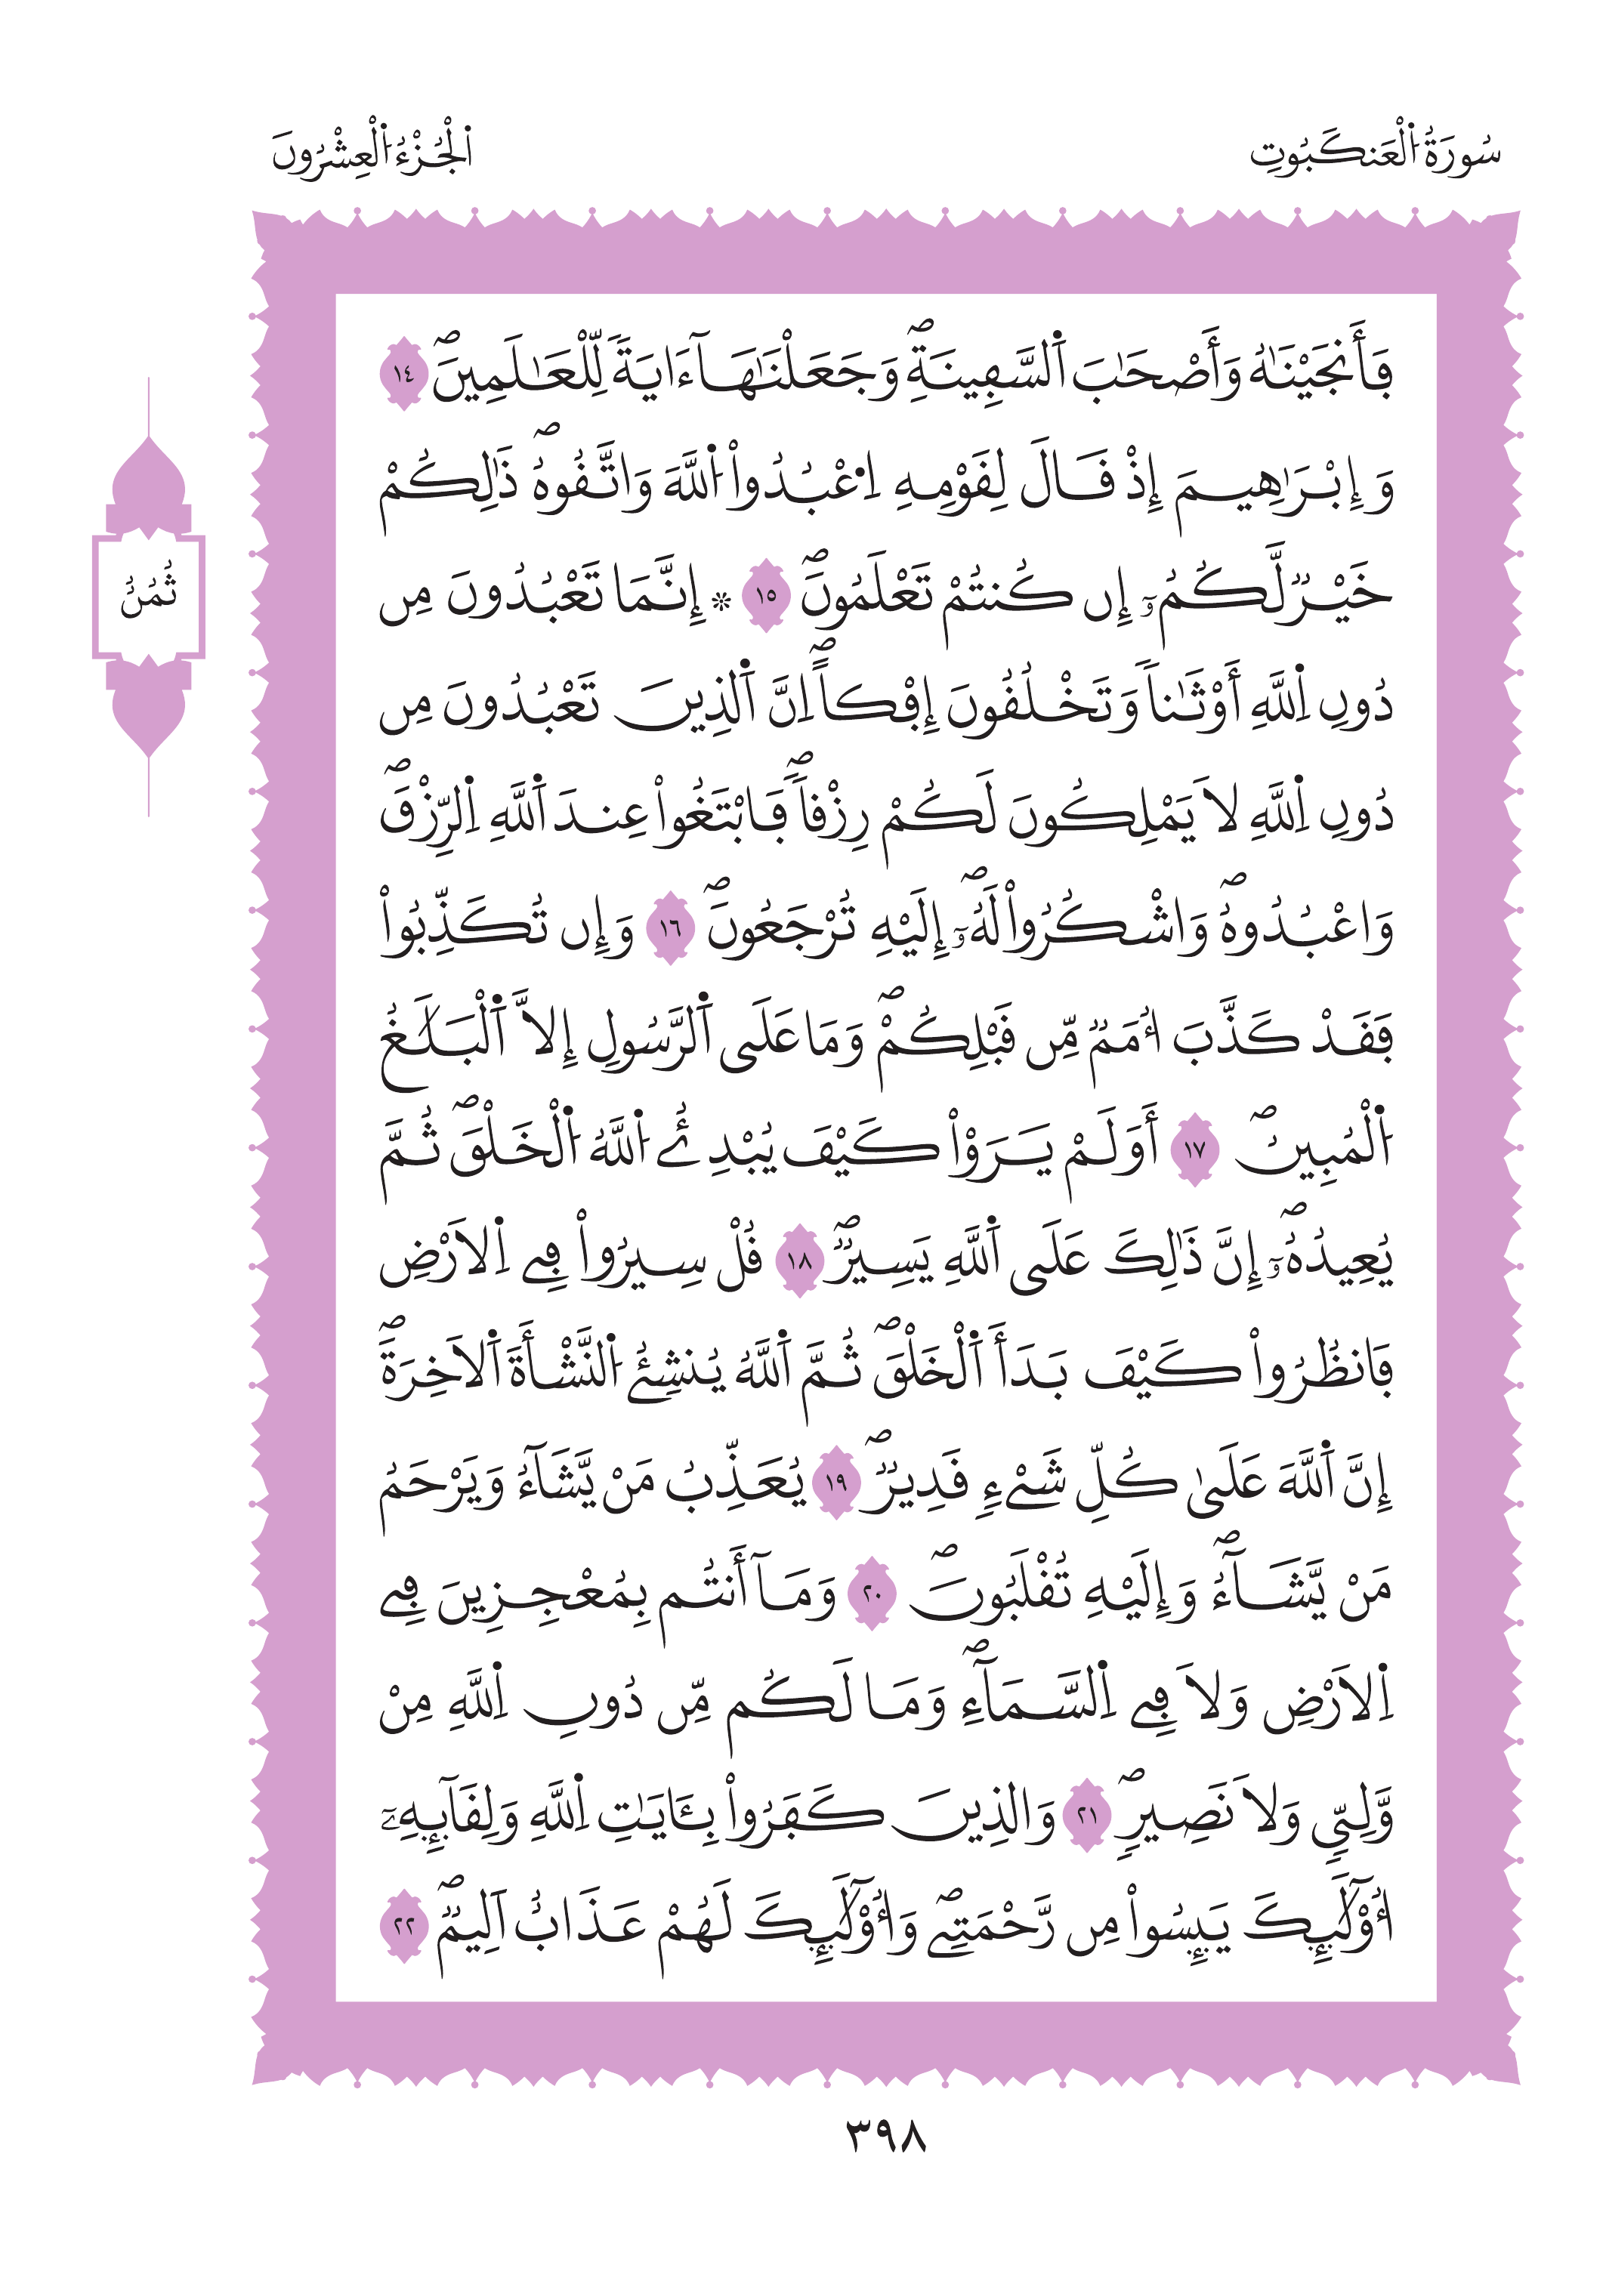 سُورَةُ اُ۬لْعَنكَبُوتِ
اَ۬لْجُزْءُ اُ۬لْعِشْرُونَ
فَأَنجَيْنَٰهُ وَأَصْحَٰبَ اَ۬لسَّفِينَةِۖ وَجَعَلْنَٰهَآ ءَايَةٗ لِّلْعَٰلَمِينَۖ ١٤
وَإِبْرَٰهِيمَ إِذْ قَالَ لِقَوْمِهِ اِ۟عْبُدُواْ اُ۬للَّهَ وَاتَّقُوهُۖ ذَٰلِكُمْ
خَيْرٞ لَّكُمُۥٓ إِن كُنتُمْ تَعْلَمُونَۖ ١٥ ۞ إِنَّمَا تَعْبُدُونَ مِن
ثُمُنُ
دُونِ اِ۬للَّهِ أَوْثَٰناٗ وَتَخْلُقُونَ إِفْكاًۖ اِنَّ اَ۬لذِينَ تَعْبُدُونَ مِن
دُونِ اِ۬للَّهِ لَا يَمْلِكُونَ لَكُمْ رِزْقاٗۖ فَابْتَغُواْ عِندَ اَ۬للَّهِ اِ۬لرِّزْقَۖ
وَاعْبُدُوهُۖ وَاشْكُرُواْ لَهُۥٓۖ إِلَيْهِ تُرْجَعُونَۖ ١٦ وَإِن تُكَذِّبُواْ
فَقَدْ كَذَّبَ أُمَمٞ مِّن قَبْلِكُمْۖ وَمَا عَلَى اَ۬لرَّسُولِ إِلَّا اَ۬لْبَلَٰغُ
اُ۬لْمُبِينُۖ ١٧ أَوَلَمْ يَرَوْاْ كَيْفَ يُبْدِئُ اُ۬للَّهُ اُ۬لْخَلْقَۖ ثُمَّ
يُعِيدُهُۥٓۖ إِنَّ ذَٰلِكَ عَلَى اَ۬للَّهِ يَسِيرٞۖ ١٨ قُلْ سِيرُواْ فِے اِ۬لَارْضِ
فَانظُرُواْ كَيْفَ بَدَأَ اَ۬لْخَلْقَۖ ثُمَّ اَ۬للَّهُ يُنشِئُ اُ۬لنَّشْأَةَ اَ۬لَاخِرَةَۖ
إِنَّ اَ۬للَّهَ عَلَىٰ كُلِّ شَےْءٖ قَدِيرٞۖ ١٩ يُعَذِّبُ مَنْ يَّشَآءُ وَيَرْحَمُ
مَنْ يَّشَآءُۖ وَإِلَيْهِ تُقْلَبُونَۖ ٢٠ وَمَآ أَنتُم بِمُعْجِزِينَ فِے
اِ۬لَارْضِ وَلَا فِے اِ۬لسَّمَآءِۖ وَمَا لَكُم مِّن دُونِ اِ۬للَّهِ مِنْ
وَّلِيّٖ وَلَا نَصِيرٖۖ ٢١ وَالذِينَ كَفَرُواْ بِـَٔايَٰتِ اِ۬للَّهِ وَلِقَآئِهِۦٓ
أُوْلَٰٓئِكَ يَئِسُواْ مِن رَّحْمَتِےۖ وَأُوْلَٰٓئِكَ لَهُمْ عَذَابٌ اَلِيمٞۖ ٢٢
٣٩٨